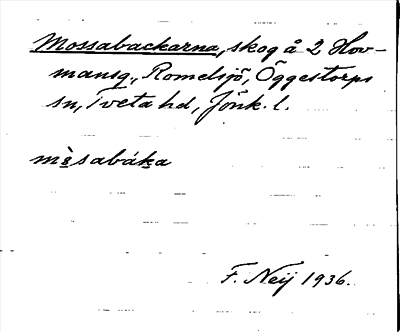 Mossabackarna, skog å 2 Hov-
mansg., Romelsjö, Öggestorps
sn, Tveta hd, Jönk. l.
mòsabáka
F. Neij 1936.